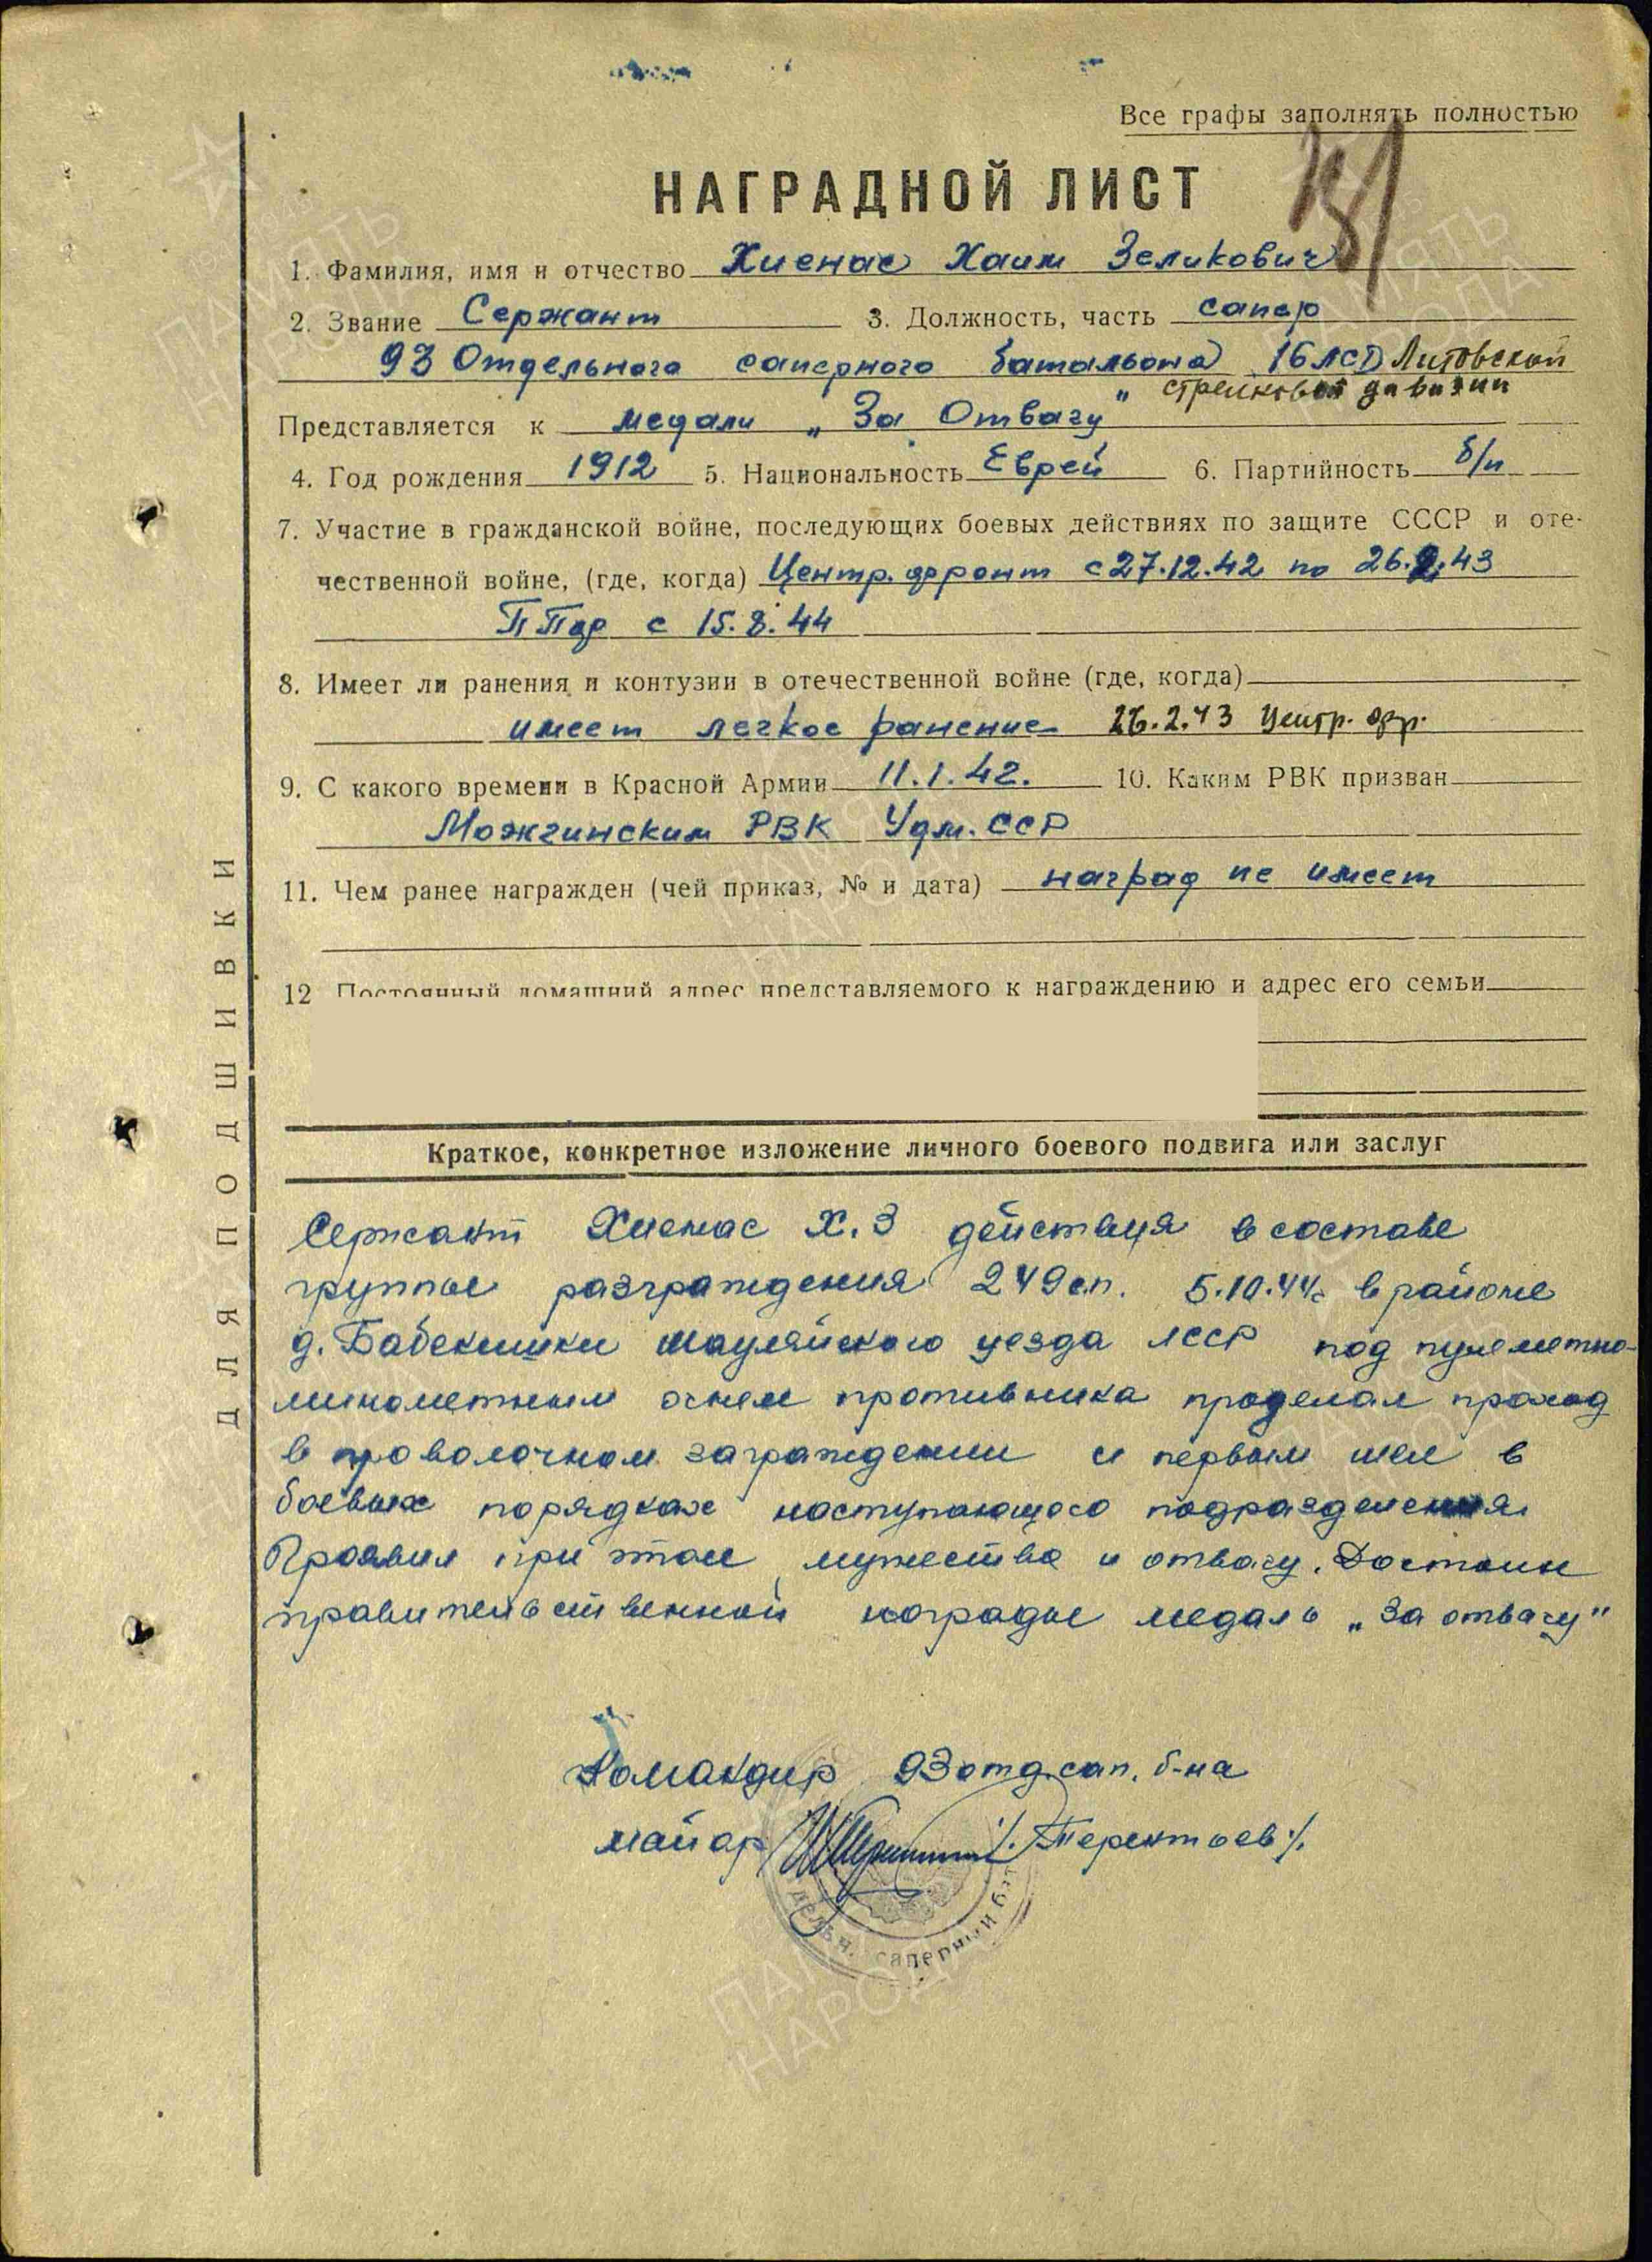 Все графы заполнять полностью
НАГРАДНОЙ ЛИСТ
1. Фамилия, имя и отчество Хиенас Хаим Зеликович
2. Звание Сержант 3. Должность, часть сапер
93 Отдельного саперного батальона 16 ЛСД Литовской
стрелковой дивизии
Представляется к медали „За Отвагу"
4. Год рождения 1912 5. Национальность Еврей 6. Партийность б/п
7. Участие в гражданской войне, последующих боевых действиях по защите СССР и оте-
чественной войне, (где, когда) Центр. фронт с 27.12.42 по 26.2.43
с 15.8.44
8. Имеет ли ранения и контузии в отечественной войне (где, когда)
имеет легкое ранение 26.2.43 Центр. фр.
9. С какого времени в Красной Армии 11.1.42. 10. Каким РВК призван
Можгинским РВК Удм. ССР
11. Чем ранее награжден (чей приказ, № и дата) наград не имеет
12 Постоянный домашний адрес представляемого к награждению и адрес его семьи
Краткое, конкретное изложение личного боевого подвига или заслуг
Сержант Хиенас Х.З действуя в составе
группы разграждения 249 с.п. 5.10.44г в районе
д. Бабекишки шауляйского уезда ЛССР под пулеметно-
минометным огнем противника проделал проход
в проволочном заграждении и первым шел в
боевых порядках наступающего подразделения.
Проявил при этом мужество и отвагу. Достоин
правительственной награды медаль „За отвагу"
Командир 93 отд. сап. б-на
майор /. Терентьев ./.
дельн. саперный б
ДЛЯ ПОДШИВКИ
ПАМЯТЬ
НАРОДА